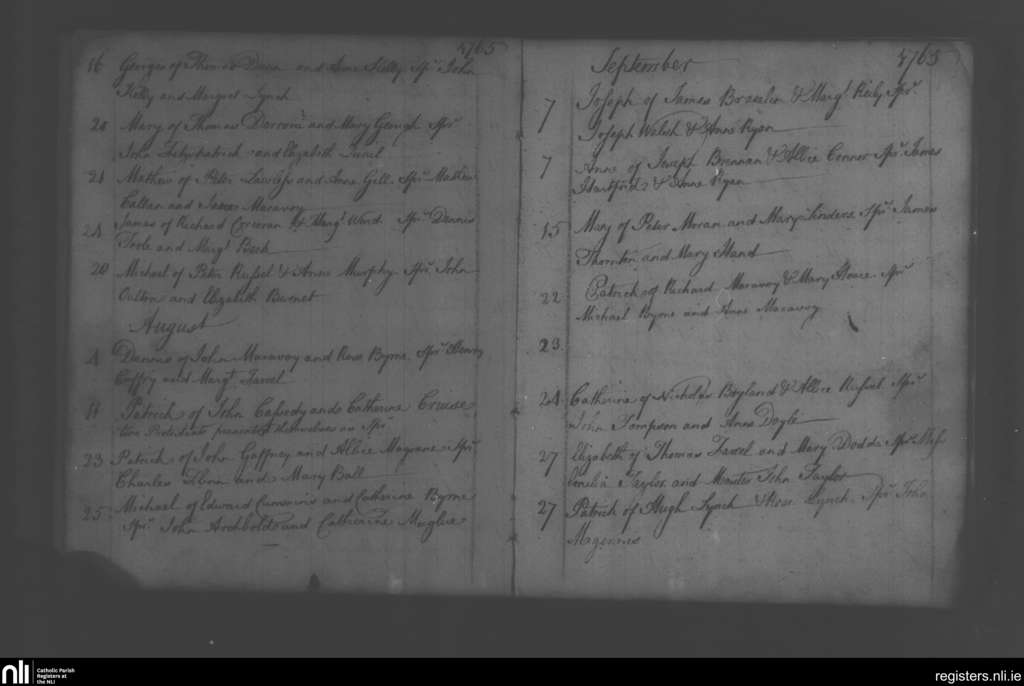 1765
16 George of Thomas Dunn and Anne Kelly Spr. John
Kelly and Margret Lynch
20 Mary of Thomas and Mary Geough Spr.
John Fitzpatrick and Elizabeth
21 Mathew of Peter Lawless and Anne Gill. Spr. Mathew
Callan and James Macavoy
24 James of Richard Corcoran & Margt. Ward Spr. Dennis
Toole and Margt. Beck
20 Michael of Peter Russel & Anne Murphy Spr. John
and Elizabeth Burnet
August
4 Dennis of John Macavoy and Rose Byrne Spr. Henry
Caffry and Margt. Farrel
11 Patrick of John Cassedy and Catherine Cruise
two Protestants presented themselves as Spr.
23 Patrick of John Gaffney and Allice Spr.
Charles and Mary Ball
25 Michael of Edward Cummins and Catherine Byrne
Spr. John Archbold and Catherine Maglue
September 1765
7 Joseph of James & Margt. Reily Spr.
Joseph Walsh & Anne Ryan
7 Anne of Joseph Brennan & Allice Connor Spr. James
& Anne Ryan
15 Mary of Peter Moran and Mary Spr. James
Thornton and Mary Hand
22 Patrick of Richard Macavoy & Mary Spr.
Michael Byrne and Anne Macavoy
23
24 Catherine of Nicholas Boyland & Allice Russel Spr.
John Tompson and Anne Doyle
27 Elizabeth of Thomas Farrel and Mary Dodds Spr.
Taylor and Master John Taylor
27 Patrick of Hugh Lynch & Rose Lynch Spr. John
Magennis
nli Catholic Parish
Registers at
the NLI
registers.nli.ie